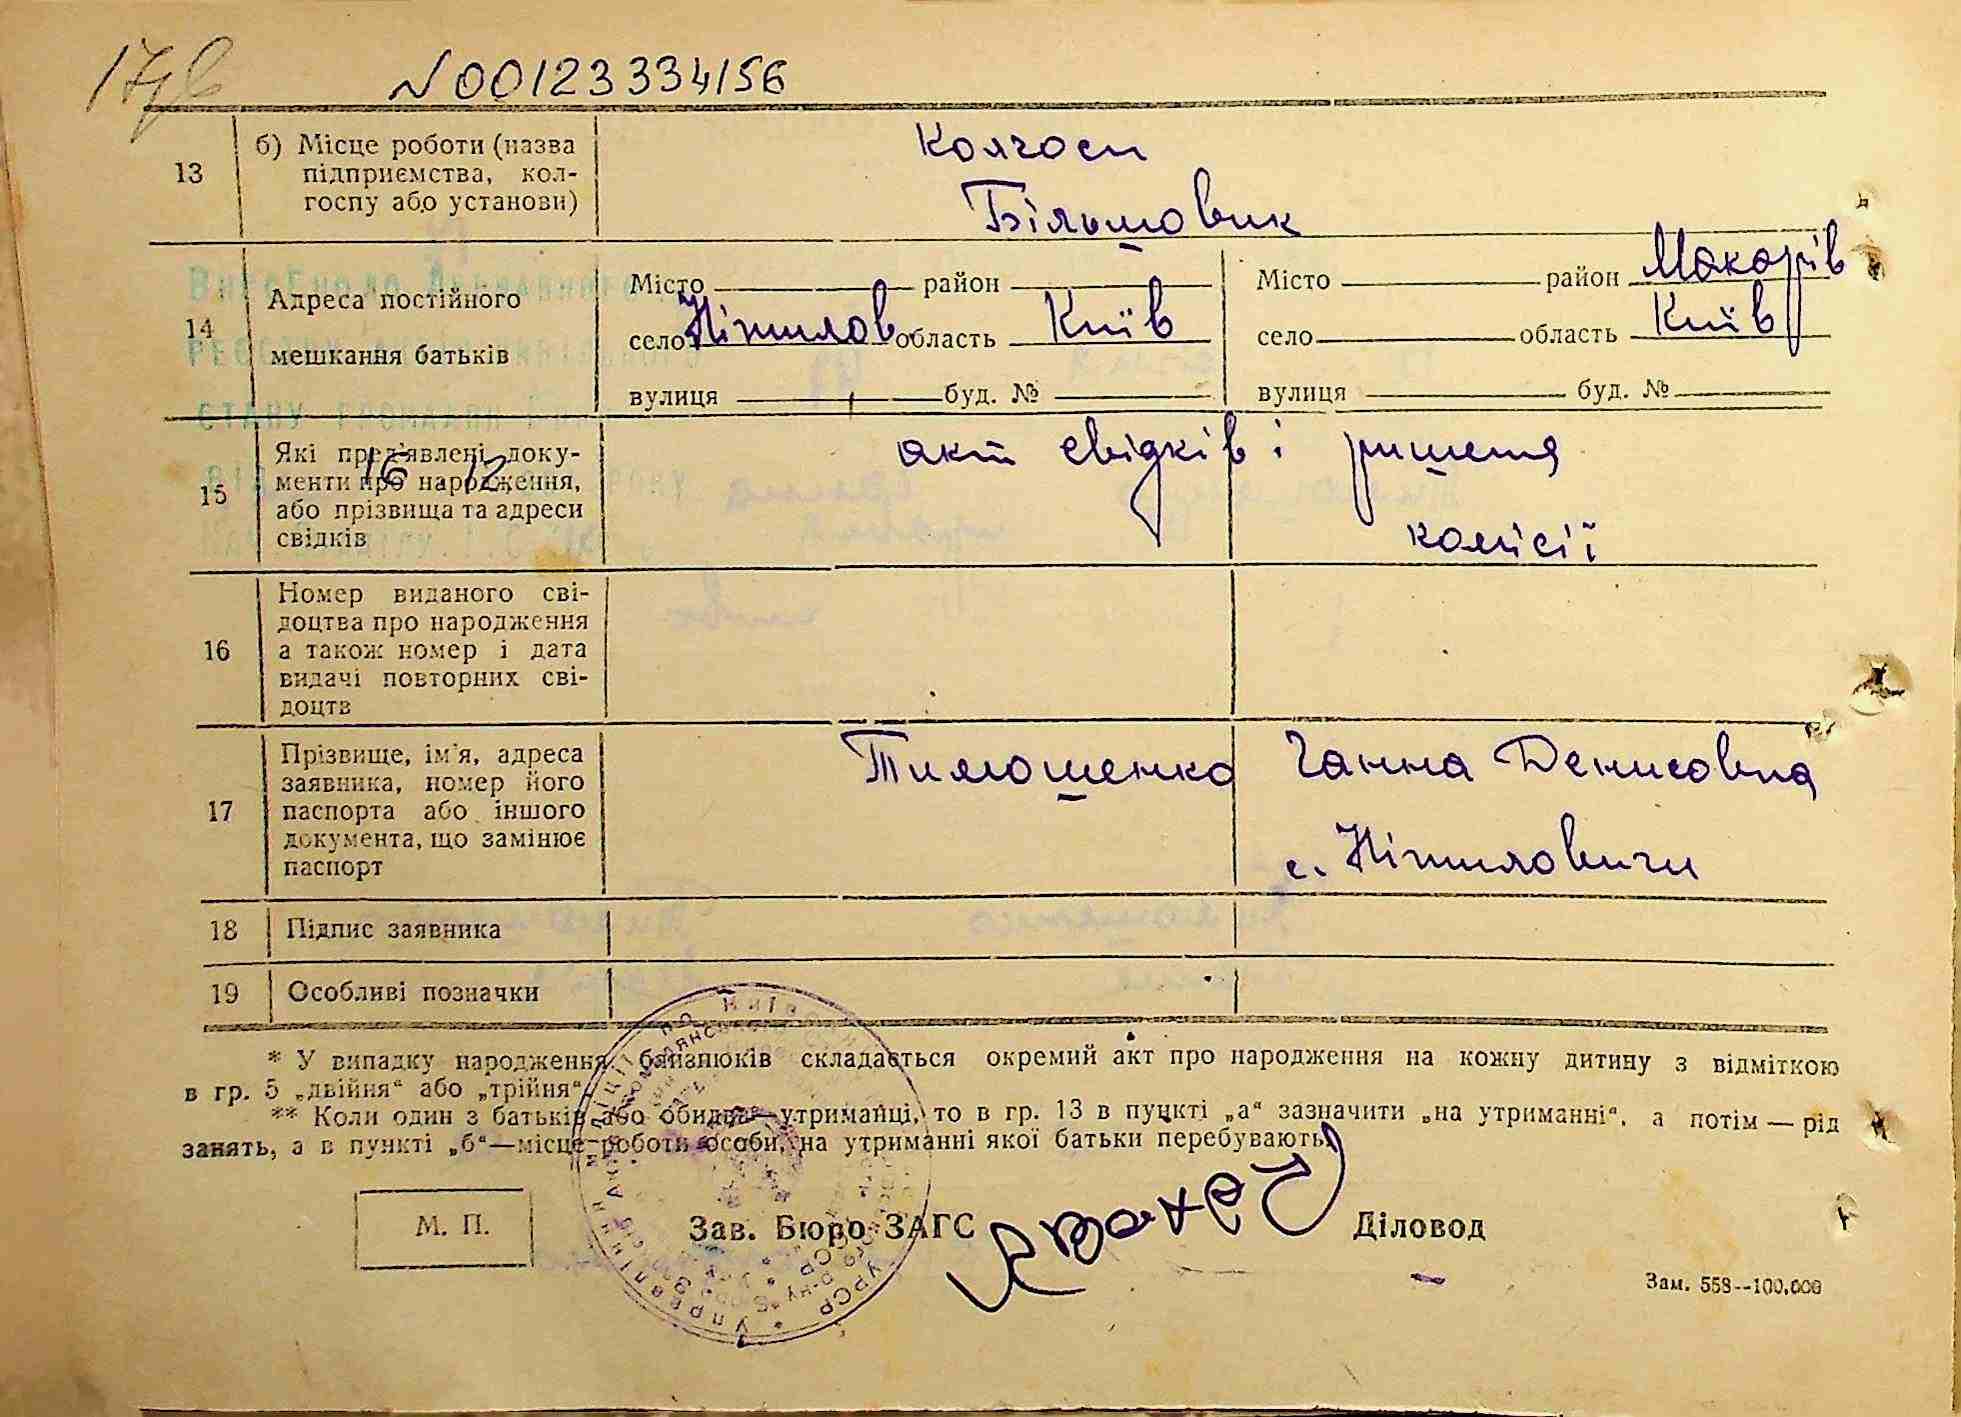 N00123334156
13
б) Місце роботи (назва
підприємства, кол-
госпу або установи)
Колгосп
Більшовик
14
Адреса постійного
мешкання батьків
Місто район
село Ніжилов область Київ
вулиця буд. №
Місто район Макарів
село область Київ
вулиця буд. №
15
Які пред'явлені доку-
менти про народження,
або прізвища та адреси
свідків
16 12
акт свідків і рішення
комісії
16
Номер виданого сві-
доцтва про народження
а також номер і дата
видачі повторних сві-
доцтв
17
Прізвище, ім'я, адреса
заявника, номер його
паспорта або іншого
документа, що замінює
паспорт
Тимошенко Ганна Денисовна
с. Ніжиловичи
18
Підпис заявника
19
Особливі позначки
* У випадку народження близнюків складається окремий акт про народження на кожну дитину з відміткою
в гр. 5 „двійня“ або „трійня“.
** Коли один з батьків або обидва—утриманці, то в гр. 13 в пункті „а“ зазначити „на утриманні“, а потім — рід
занять, а в пункті „б“—місце роботи особи, на утриманні якої батьки перебувають.
М. П.
Зав. Бюро ЗАГС
Діловод
Зам. 558--100.000